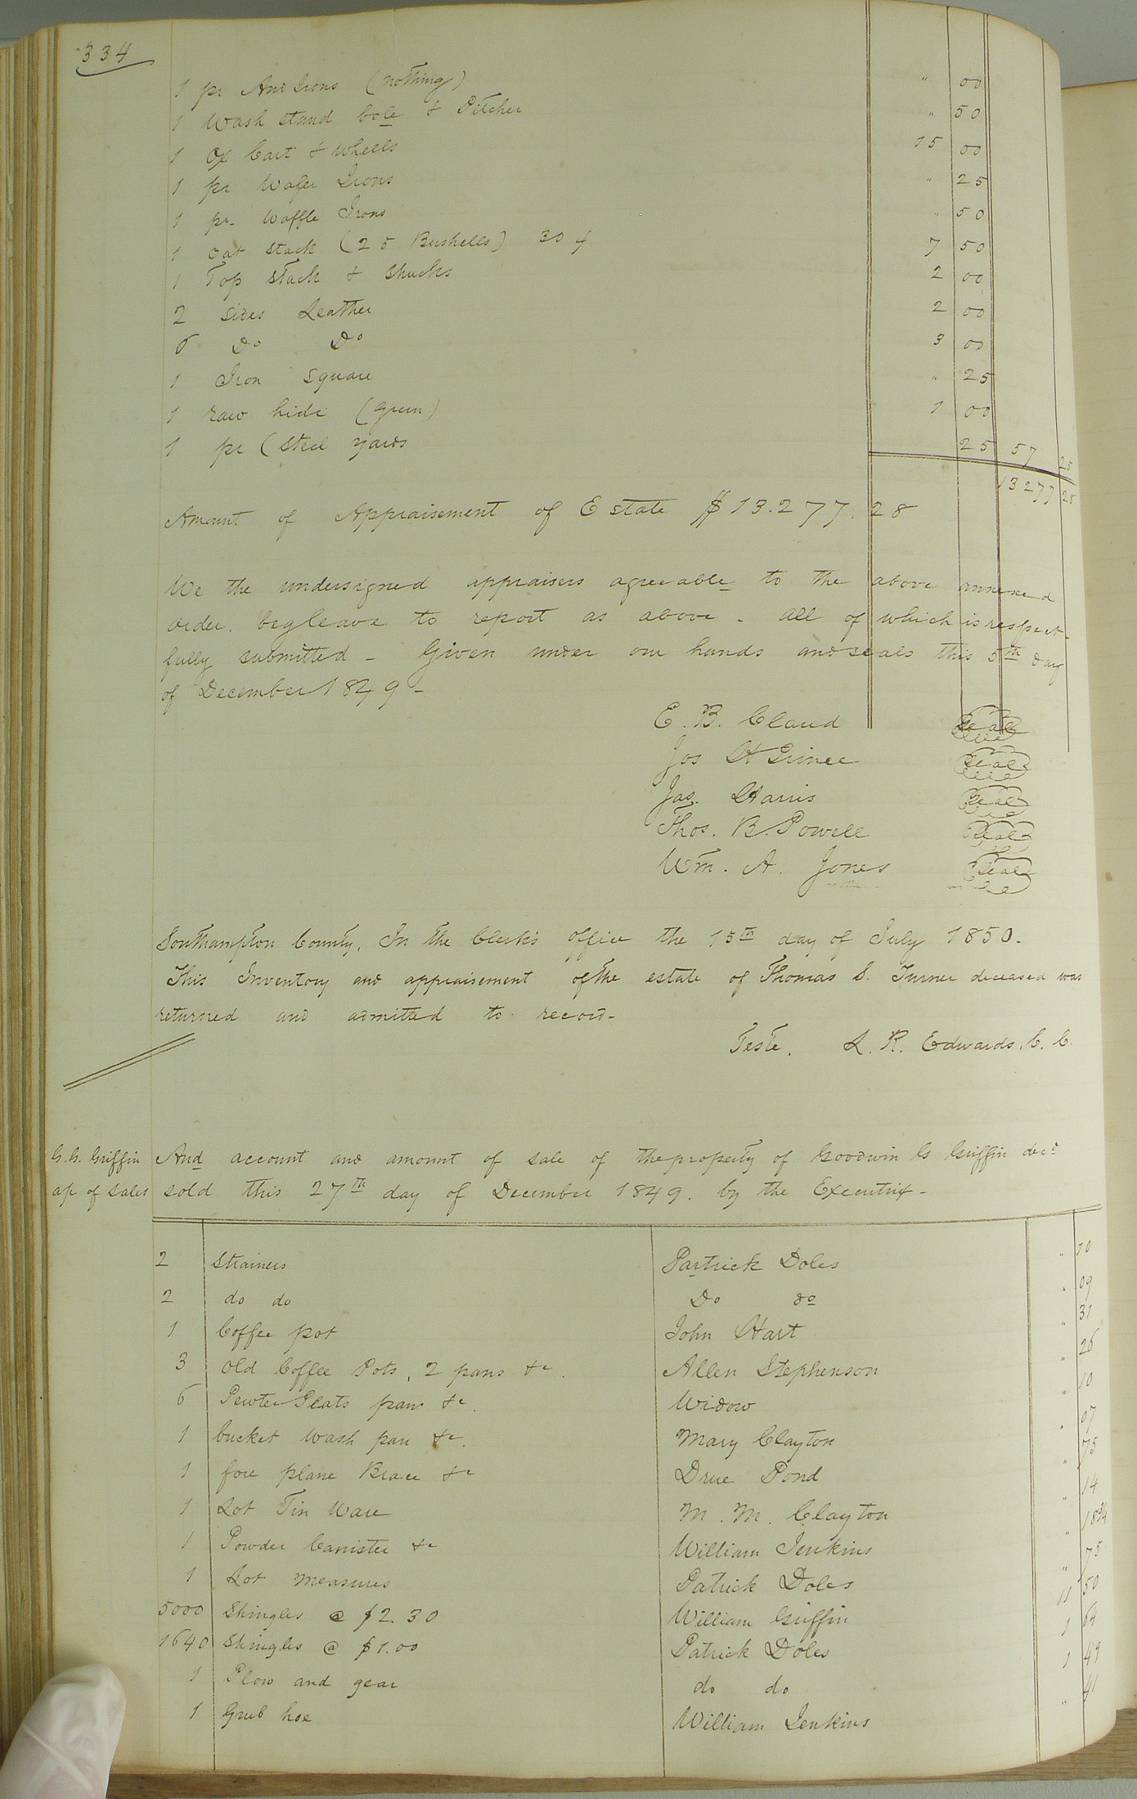 334
1 pr And Irons (nothing) " 00
1 Wash stand bole & Pitcher " 50
1 Ox Cart & wheels 15 00
1 pr Wafer Irons " 25
1 pr. Waffle Irons " 50
1 oat stack (25 Bushells) 30 7 50
1 Top stack & shucks 2 00
2 sides Leather 2 00
6 Do Do 3 00
1 Iron square " 25
1 raw hide (green) 1 00
1 pr (Steel yards 25 57 25
13277 28
Amount of Appraisement of Estate $13.277.28
We the undersigned appraisers agreeable to the above annexed
order. beg leave to report as above. all of which is respect-
fully submitted - Given under our hands and seals this 5th day
of December 1849 -
E. B. Claud Seal
Jos H Prince Seal
Jas. Harris Seal
Thos. B. Powell Seal
Wm. A. Jones Seal
Southampton County, In the Clerk's office the 15th day of July 1850.
This Inventory and appraisement of the estate of Thomas S. Turner deceased was
returned and admitted to record-
Teste, L. R. Edwards, C. C.
G. G. Griffin And account and amount of sale of the property of Goodwin G Griffin decd
a/c of sales sold this 27th day of December 1849. by the Executrix -
2 Strainers Partrick Doles " 10
2 do do Do do " 09
1 Coffee pot John Hart " 31
3 old Coffee Pots, 2 pans &c. Allen Stephenson " 26
6 Pewter Plats pans &c. Widow " 10
1 bucket Wash pan &c. Mary Clayton " 07
1 fore plane Brace &c Drue Pond " 75
1 Lot Tin Ware M. M. Clayton " 14
1 Powder Canister &c William Jenkins " 18 3/4
1 Lot measures Patrick Doles " 75
5000 Shingles @ $2.30 William Griffin 11 50
1640 Shingles @ $1.00 Patrick Doles 1 64
1 Plow and gear do do 1 49
1 Grub hoe William Jenkins " 41